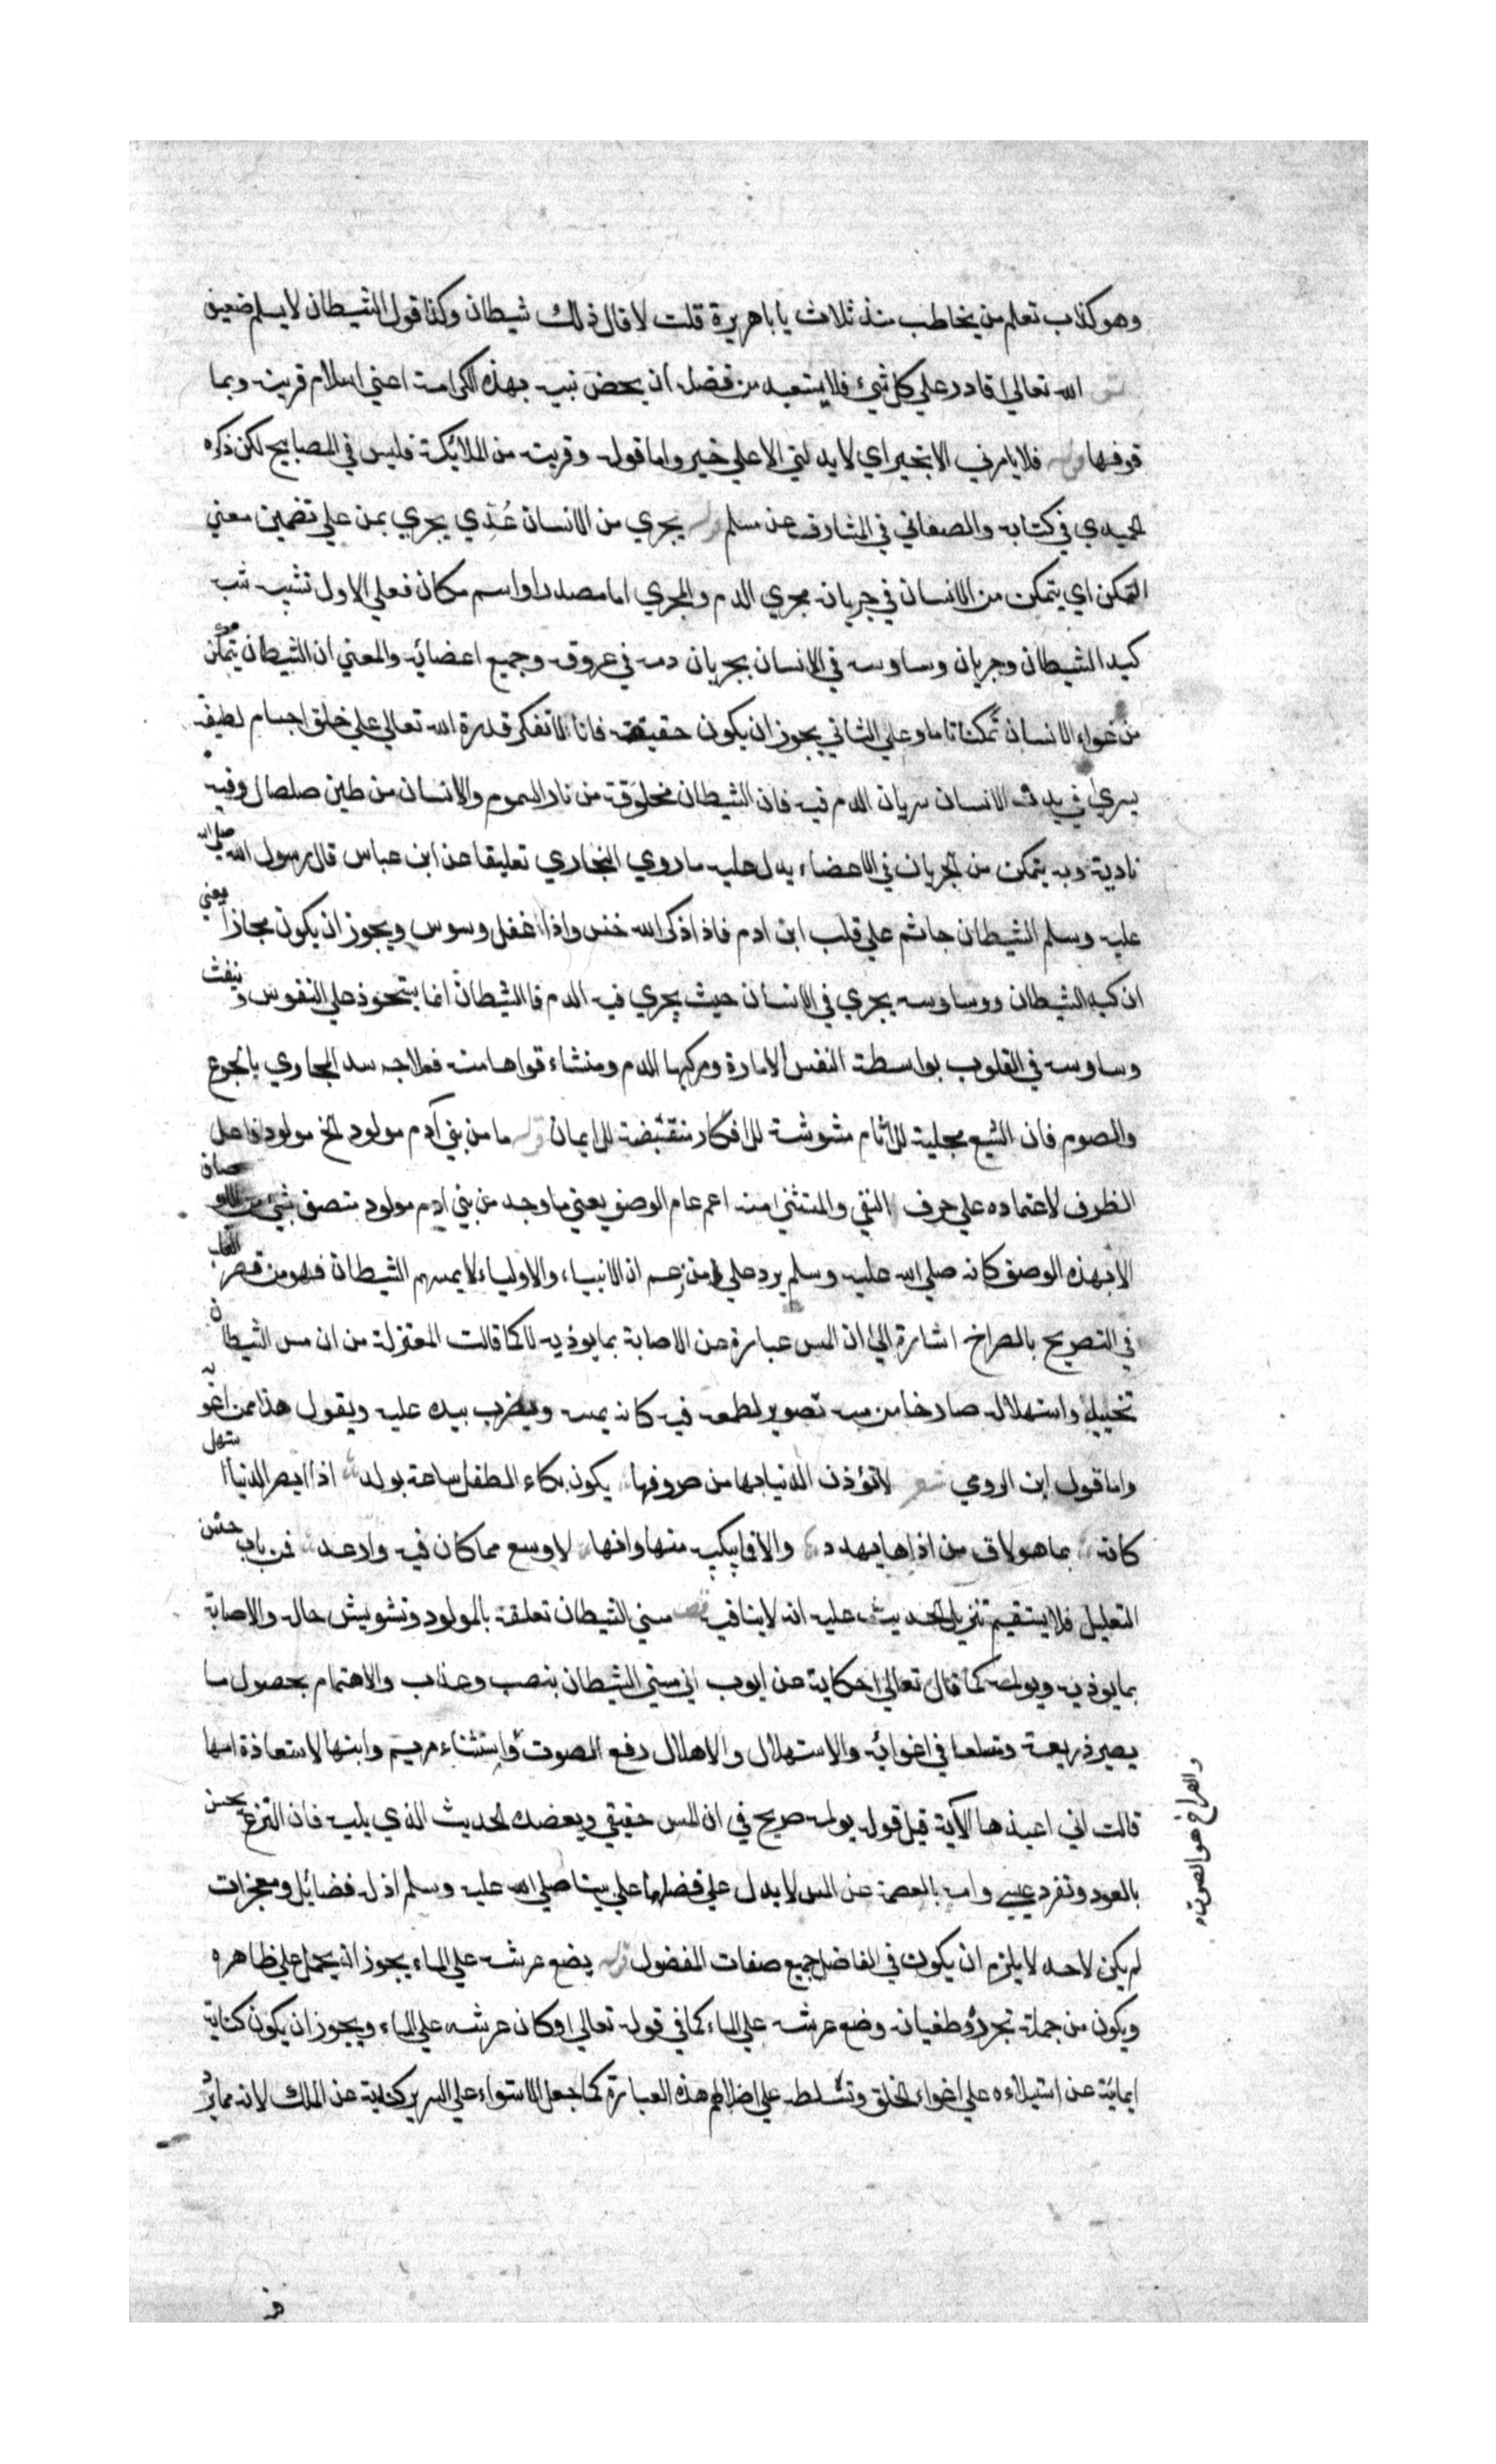 وهو كذاب تعلم من يخاطب منذ ثلاث يا با هريرة قلت لا قال ذلك شيطان وكذا قول الشيطان لا يسلم ضعيف
الله تعالي قادر علي كل شيء فلا يستبعد من فضله ان يخص نبيه بهذه الكرامة اعني اسلام قرينه وبما
فوقها قوله فلا يامرني الا بخير اي لا يدلني الا علي خير واما قوله وقرينه من الملائكة فليس في المصابيح لكن ذكره
الحميدي في كتابه والصغاني في المشارق عن مسلم قوله يجري من الانسان عُدِّي يجري بمن علي تضمين معني
التمكن اي يتمكن من الانسان في جريانه مجري الدم والمجري اما مصدر او اسم مكان فعلي الاول تشبيه شبه
كيد الشيطان وجريان وساوسه في الانسان بجريان دمه في عروقه وجميع اعضائه والمعني ان الشيطان يتمكن
من غواء الانسان تمكنا تاما وعلي الثاني يجوز ان يكون حقيقة فانا لا تفكر قدرة الله تعالي علي خلق اجسام لطيفة
يسري في بدن الانسان سريان الدم فيه فان الشيطان مخلوقة من نار السموم والانسان من طين صلصال وفيه
نارية وبه يتمكن من الجريان في الاعضاء يدل عليه ما روي البخاري تعليقا عن ابن عباس قال رسول الله صلي الله
عليه وسلم الشيطان جاثم علي قلب ابن ادم فاذا ذكر الله خنس واذا غفل وسوس ويجوز ان يكون مجازا يعني
ان كيد الشيطان ووساوسه يجري في الانسان حيث يجري فيه الدم فالشيطان انما يستحوذ علي النفوس وينفث
وساوسه في القلوب بواسطة النفس الامارة ومركبها الدم ومنشاء قواها منه فعلاجه سد المجاري بالجوع
والصوم فان الشبع مجلبة للاثام مشوشة للافكار منقبضة للايمان قوله ما من بني آدم مولود الخ مولود فاعل
الظرف لاعتماده علي حرف النفي والمستثني منه اعم عام الوصف يعني ما وجد من بني ادم مولود متصف بشيء من الاوصاف
الا بهذه الوصف كانه صلي الله عليه وسلم يرد علي من زعم ان الانبياء والاولياء لا يمسهم الشيطان فهو من قصر القلب
في التصريح بالصراخ اشارة الي ان المس عبارة عن الاصابة بما يوذيه لا كما قالت المعتزلة من ان مس الشيطان
تخييل واستهلاله صارخا من مسه تصوير لطمعه فيه كانه يمسه ويضرب بيده عليه ويقول هذا ممن اغويه
واما قول ابن الرومي شعر لا تؤذن الدنيا بها من صروفها يكون بكاء الطفل ساعة يولد اذا ابصر الدنيا استهل
كانه بما هو لاق من اذاها يهدد والا فما يبكيه منها وانها لاوسع مما كان فيه وارغد فمن باب حسن
التعليل فلا يستقيم تنزيل الحديث عليه انه لا ينافي مسني الشيطان تعلقه بالمولود وتشويش حاله والاصابة
بما يوذيه ويولمه كما قال تعالي حكاية عن ايوب اني مسني الشيطان بنصب وعذاب والاهتمام بحصول ما
يصير ذريعة ومتسلعا في اغوائه والاستهلال والاهلال رفع الصوت واستثناء مريم وابنها لاستعاذة امها
قالت اني اعيذها الآية قيل قوله يولد صريح في ان المس حقيقي ويعضده لحديث الذي يليه فان النزع نحس
بالعود وتفرد عيسي وامه بالعصمة عن المس لا يدل علي فضلهما علي نبينا صلي الله عليه وسلم اذ له فضائل ومعجزات
لم يكن لاحد لا يلزم ان يكون في الفاضل جميع صفات المفضول قوله يضع عرشه علي الماء يجوز ان يحمل علي ظاهره
ويكون من جملة تجرده وطغيانه وضع عرشه علي الماء كما في قوله تعالي وكان عرشه علي الماء ويجوز ان يكون كناية
ايمائية عن استيلاءه علي اغواء الخلق وتسلطه علي اضلالهم هذه العبارة كما جعل الاستواء علي السرير كناية عن الملك لانه مما يرد
والصراخ هو الصوت